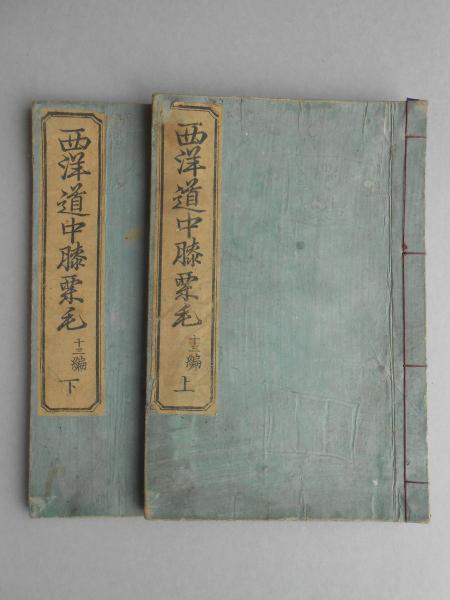 西洋道中膝栗毛 十三編 上
西洋道中膝栗毛 十三編 下